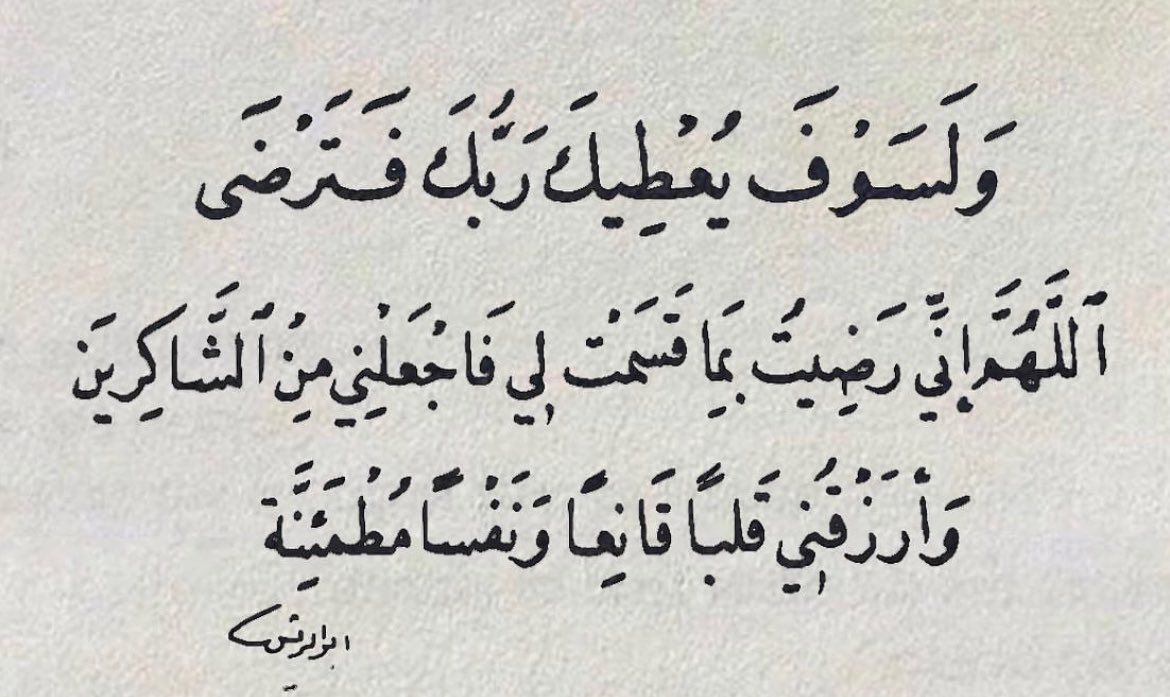 وَلَسَوْفَ يُعْطِيكَ رَبُّكَ فَتَرْضَى
ٱللَّهُمَّ إِنِّي رَضِيتُ بِمَا قَسَمْتَ لِي فَاجْعَلْنِي مِنَ ٱلشَّاكِرِينَ
وَأرْزُقْنِي قَلْبًا قَانِعًا وَنَفْسًا مُطْمَئِنَّة